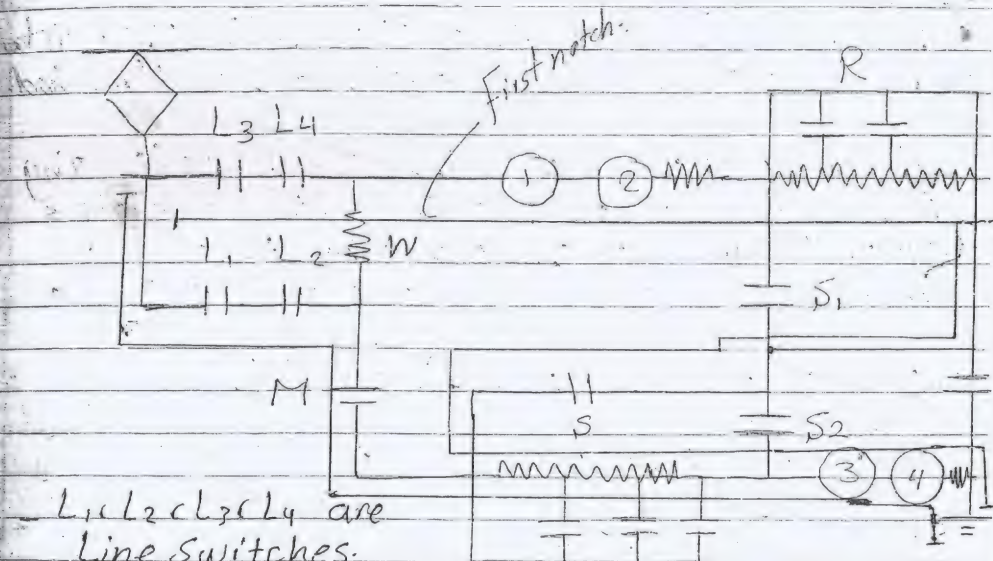 First notch.
R
L3 L4
1
2
W
L1 L2
S1
M
S
S2
3
4
L1 & L2 & L3 & L4 are
Line Switches.